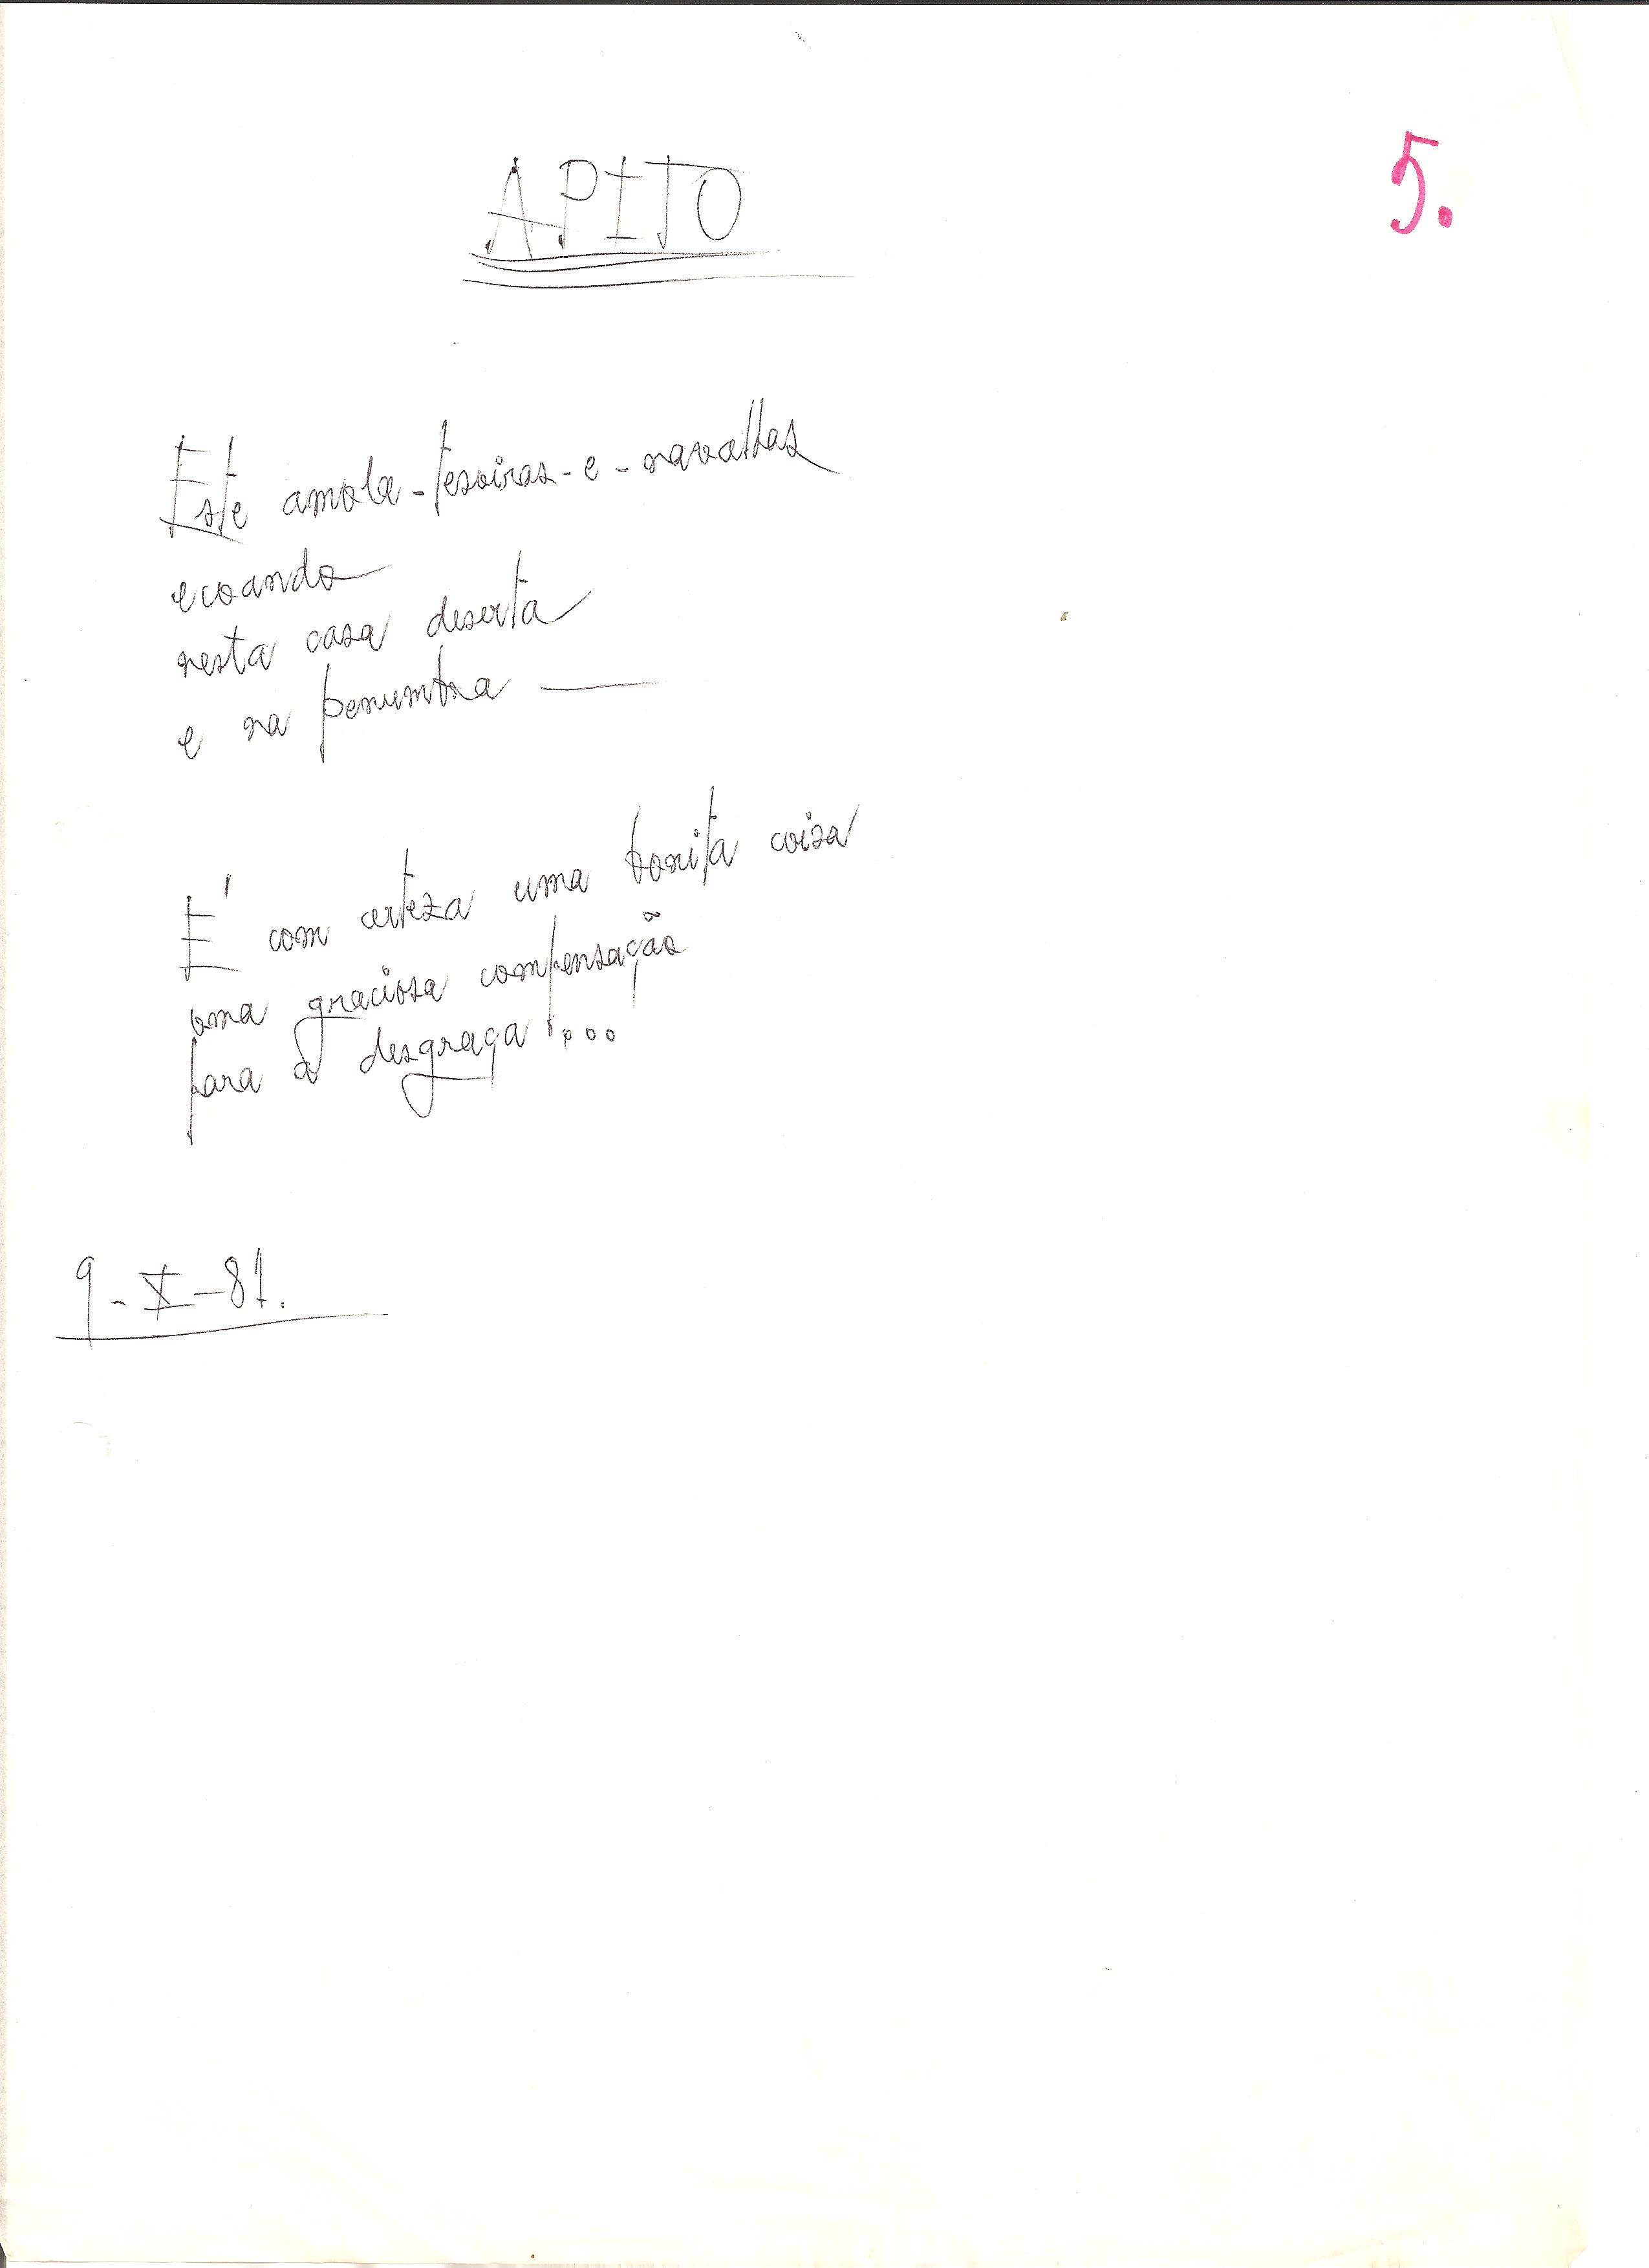 5.
APITO
Este amola-tesoiras-e-navalhas
ecoando
nesta casa deserta
e na penumbra —
É com certeza uma bonita coisa
uma graciosa compensação
para a desgraça!...
9-X-81.